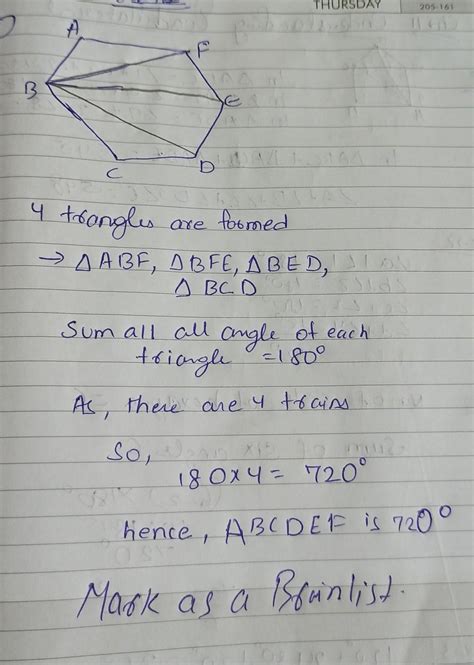 THURSDAY
205-161
A
F
B
E
C
D
4 trangles are formed
→ △ ABF, △BFE, △BED,
△ BCD
Sum all all angle of each
triangle =180°
As, there are 4 trains
So,
180x4= 720°
hence, ABCDEF is 720°
Mark as a Brainlist.